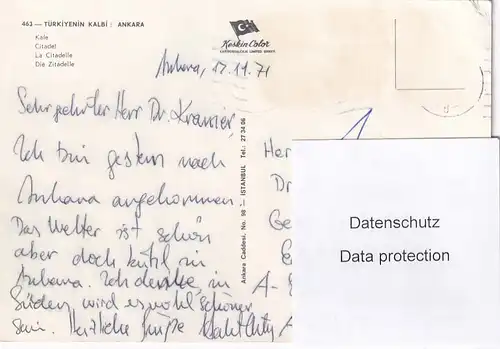 463 — TÜRKİYENİN KALBİ : ANKARA
Kale
Citadel
La Citadelle
Die Zitadelle
Keskin Color
Ankara, 17.11.71
Sehr geehrter Herr Dr. Kramer,
Ich bin gestern nach
Ankara angekommen.
Das Wetter ist schön
aber doch kühl in
Ankara. Ich denke, in
Süden wird es wohl schöner
sein. Herzliche Grüße
Ankara Caddesi, No. 98 — İSTANBUL Tel.: 27 34 06
Her
Dr
Ge
A-
Datenschutz
Data protection